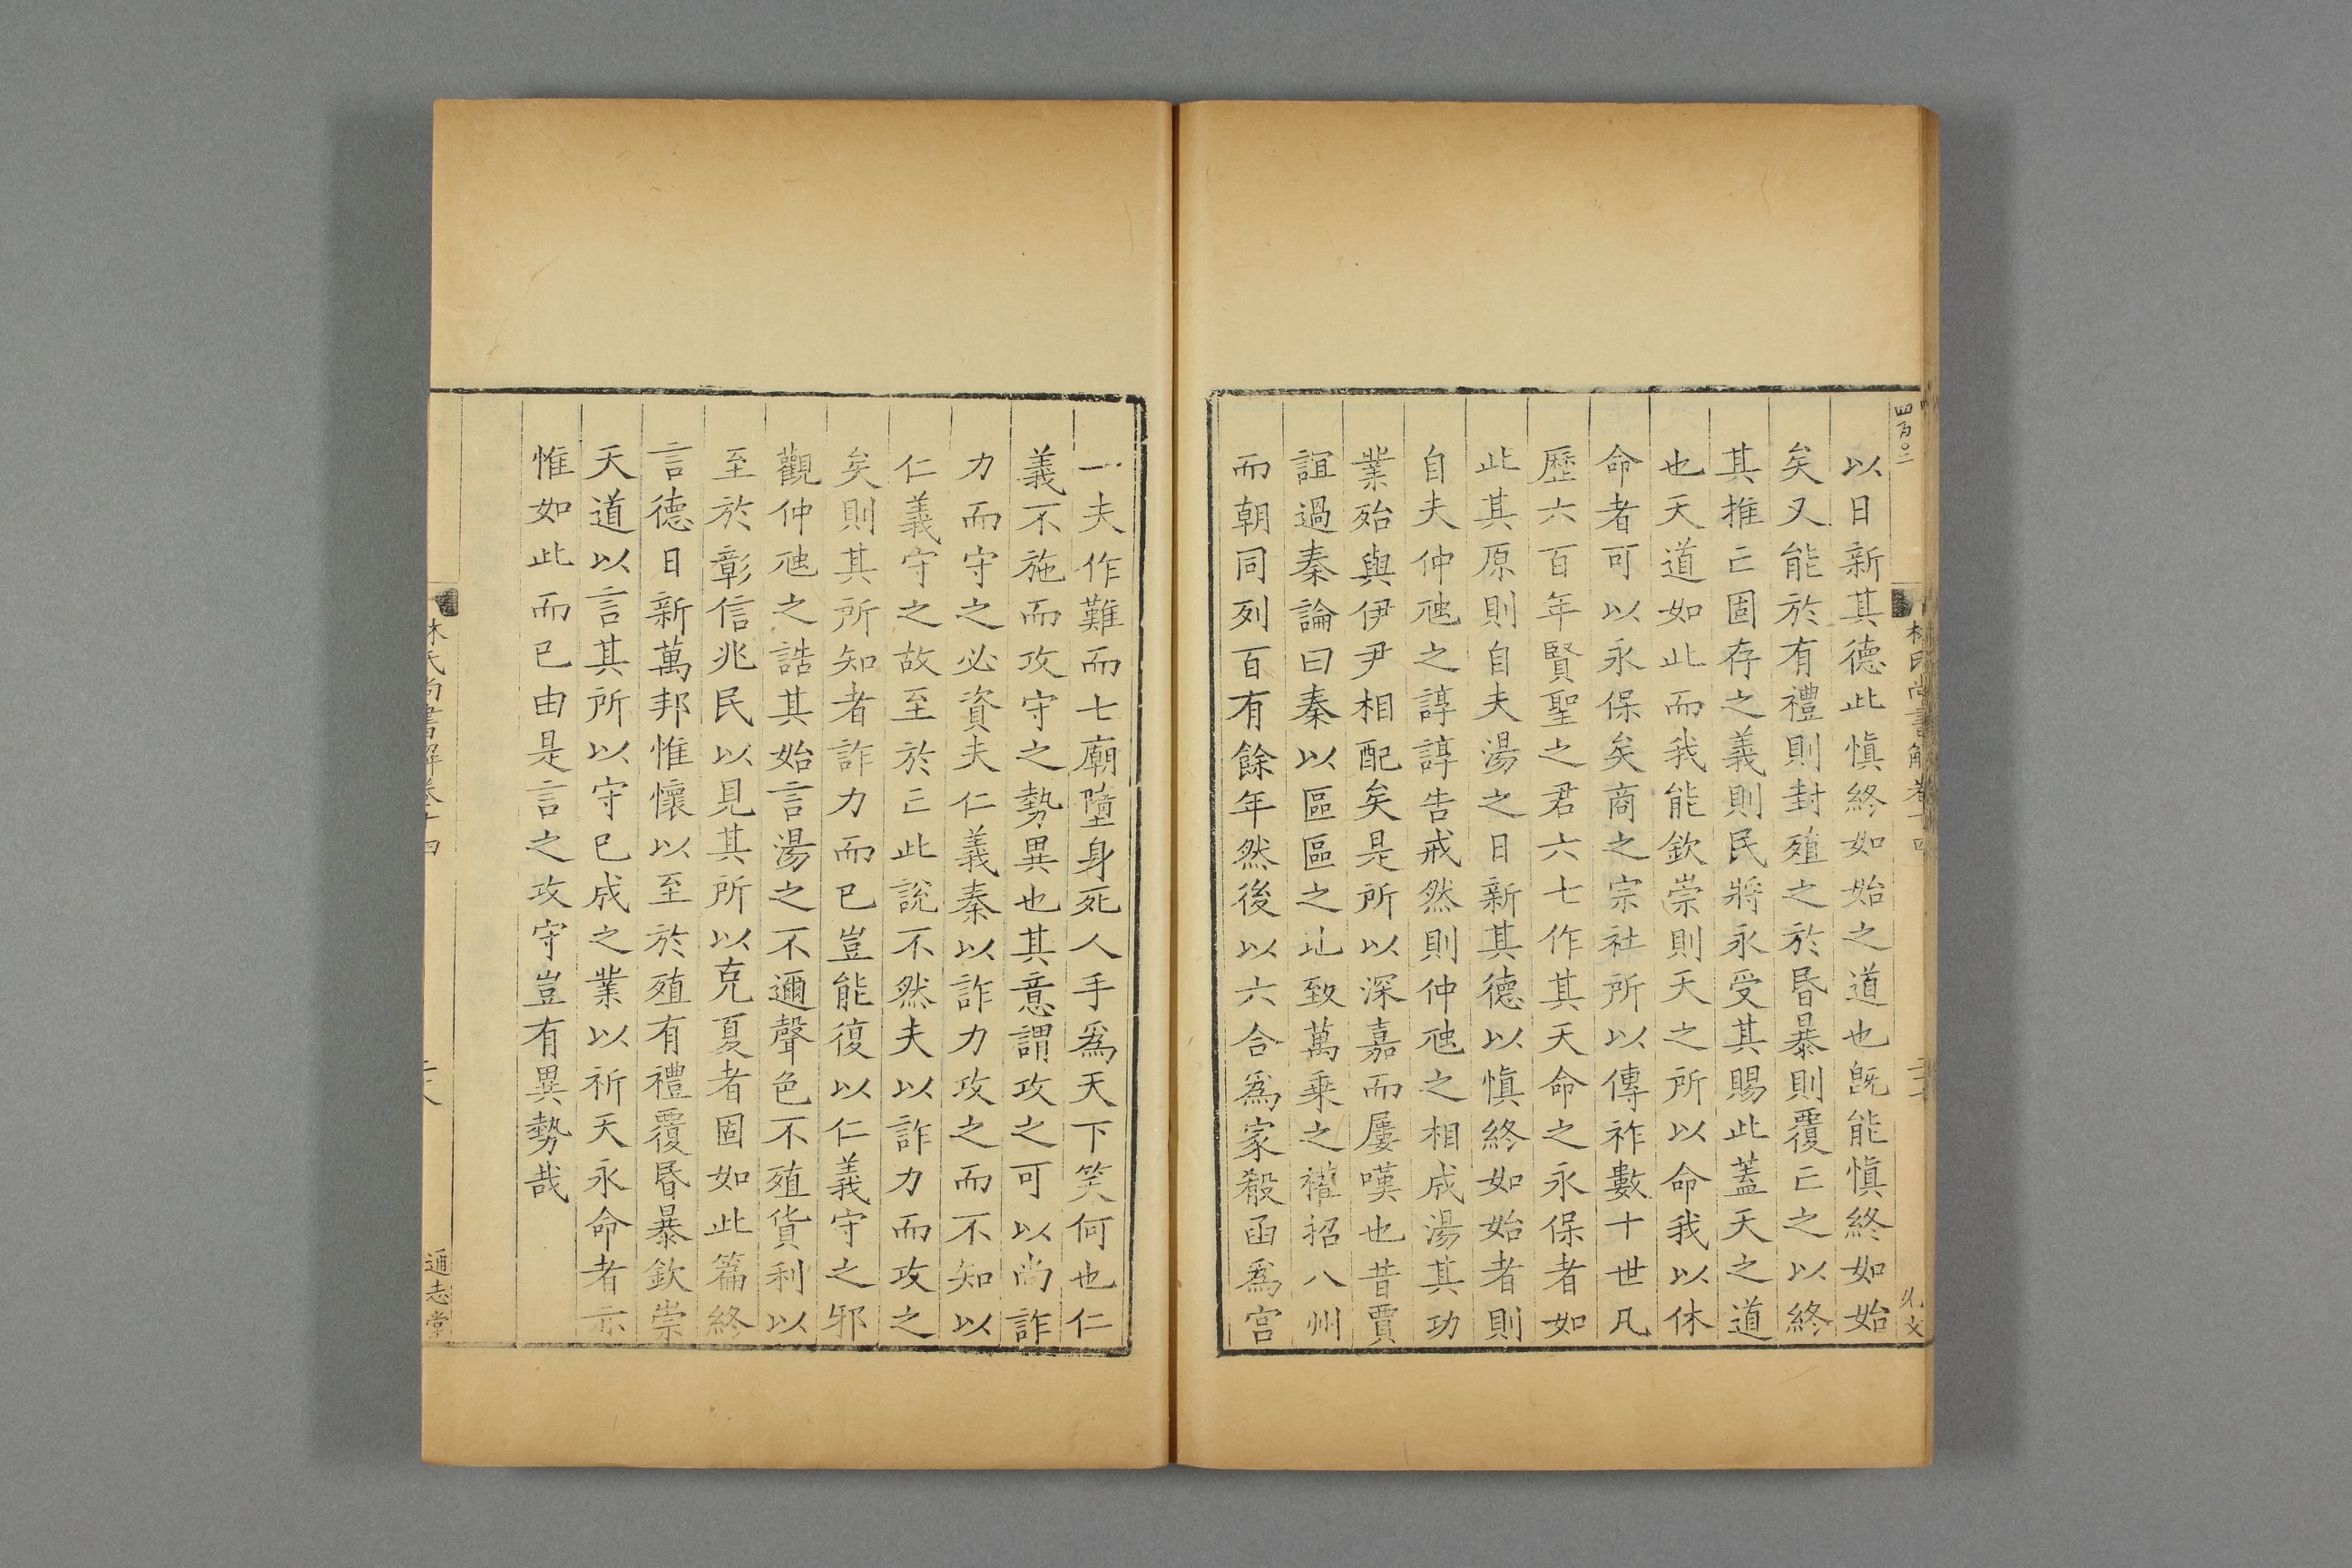 四百〇二
林氏尚書解卷十四
以日新其德此愼終如始之道也旣能愼終如始
矣又能於有禮則封殖之於昬暴則覆亾之以終
其推亾固存之義則民將永受其賜此蓋天之道
也天道如此而我能欽崇則天之所以命我以休
命者可以永保矣商之宗社所以傳祚數十世凡
歷六百年賢聖之君六七作其天命之永保者如
此其原則自夫湯之日新其德以愼終如始者則
自夫仲虺之諄諄告戒然則仲虺之相成湯其功
業殆與伊尹相配矣是所以深嘉而屢嘆也昔賈
誼過秦論曰秦以區區之地致萬乗之權招八州
而朝同列百有餘年然後以六合爲家殽函爲宫
一夫作難而七廟墮身死人手爲天下笑何也仁
義不施而攻守之勢異也其意謂攻之可以尚詐
力而守之必資夫仁義秦以詐力攻之而不知以
仁義守之故至於亾此說不然夫以詐力而攻之
矣則其所知者詐力而已豈能復以仁義守之邪
觀仲虺之誥其始言湯之不邇聲色不殖貨利以
至於彰信兆民以見其所以克夏者固如此篇終
言德日新萬邦惟懷以至於殖有禮覆昬暴欽崇
天道以言其所以守已成之業以祈天永命者亦
惟如此而已由是言之攻守豈有異勢哉
林氏尚書解卷十四
通志堂